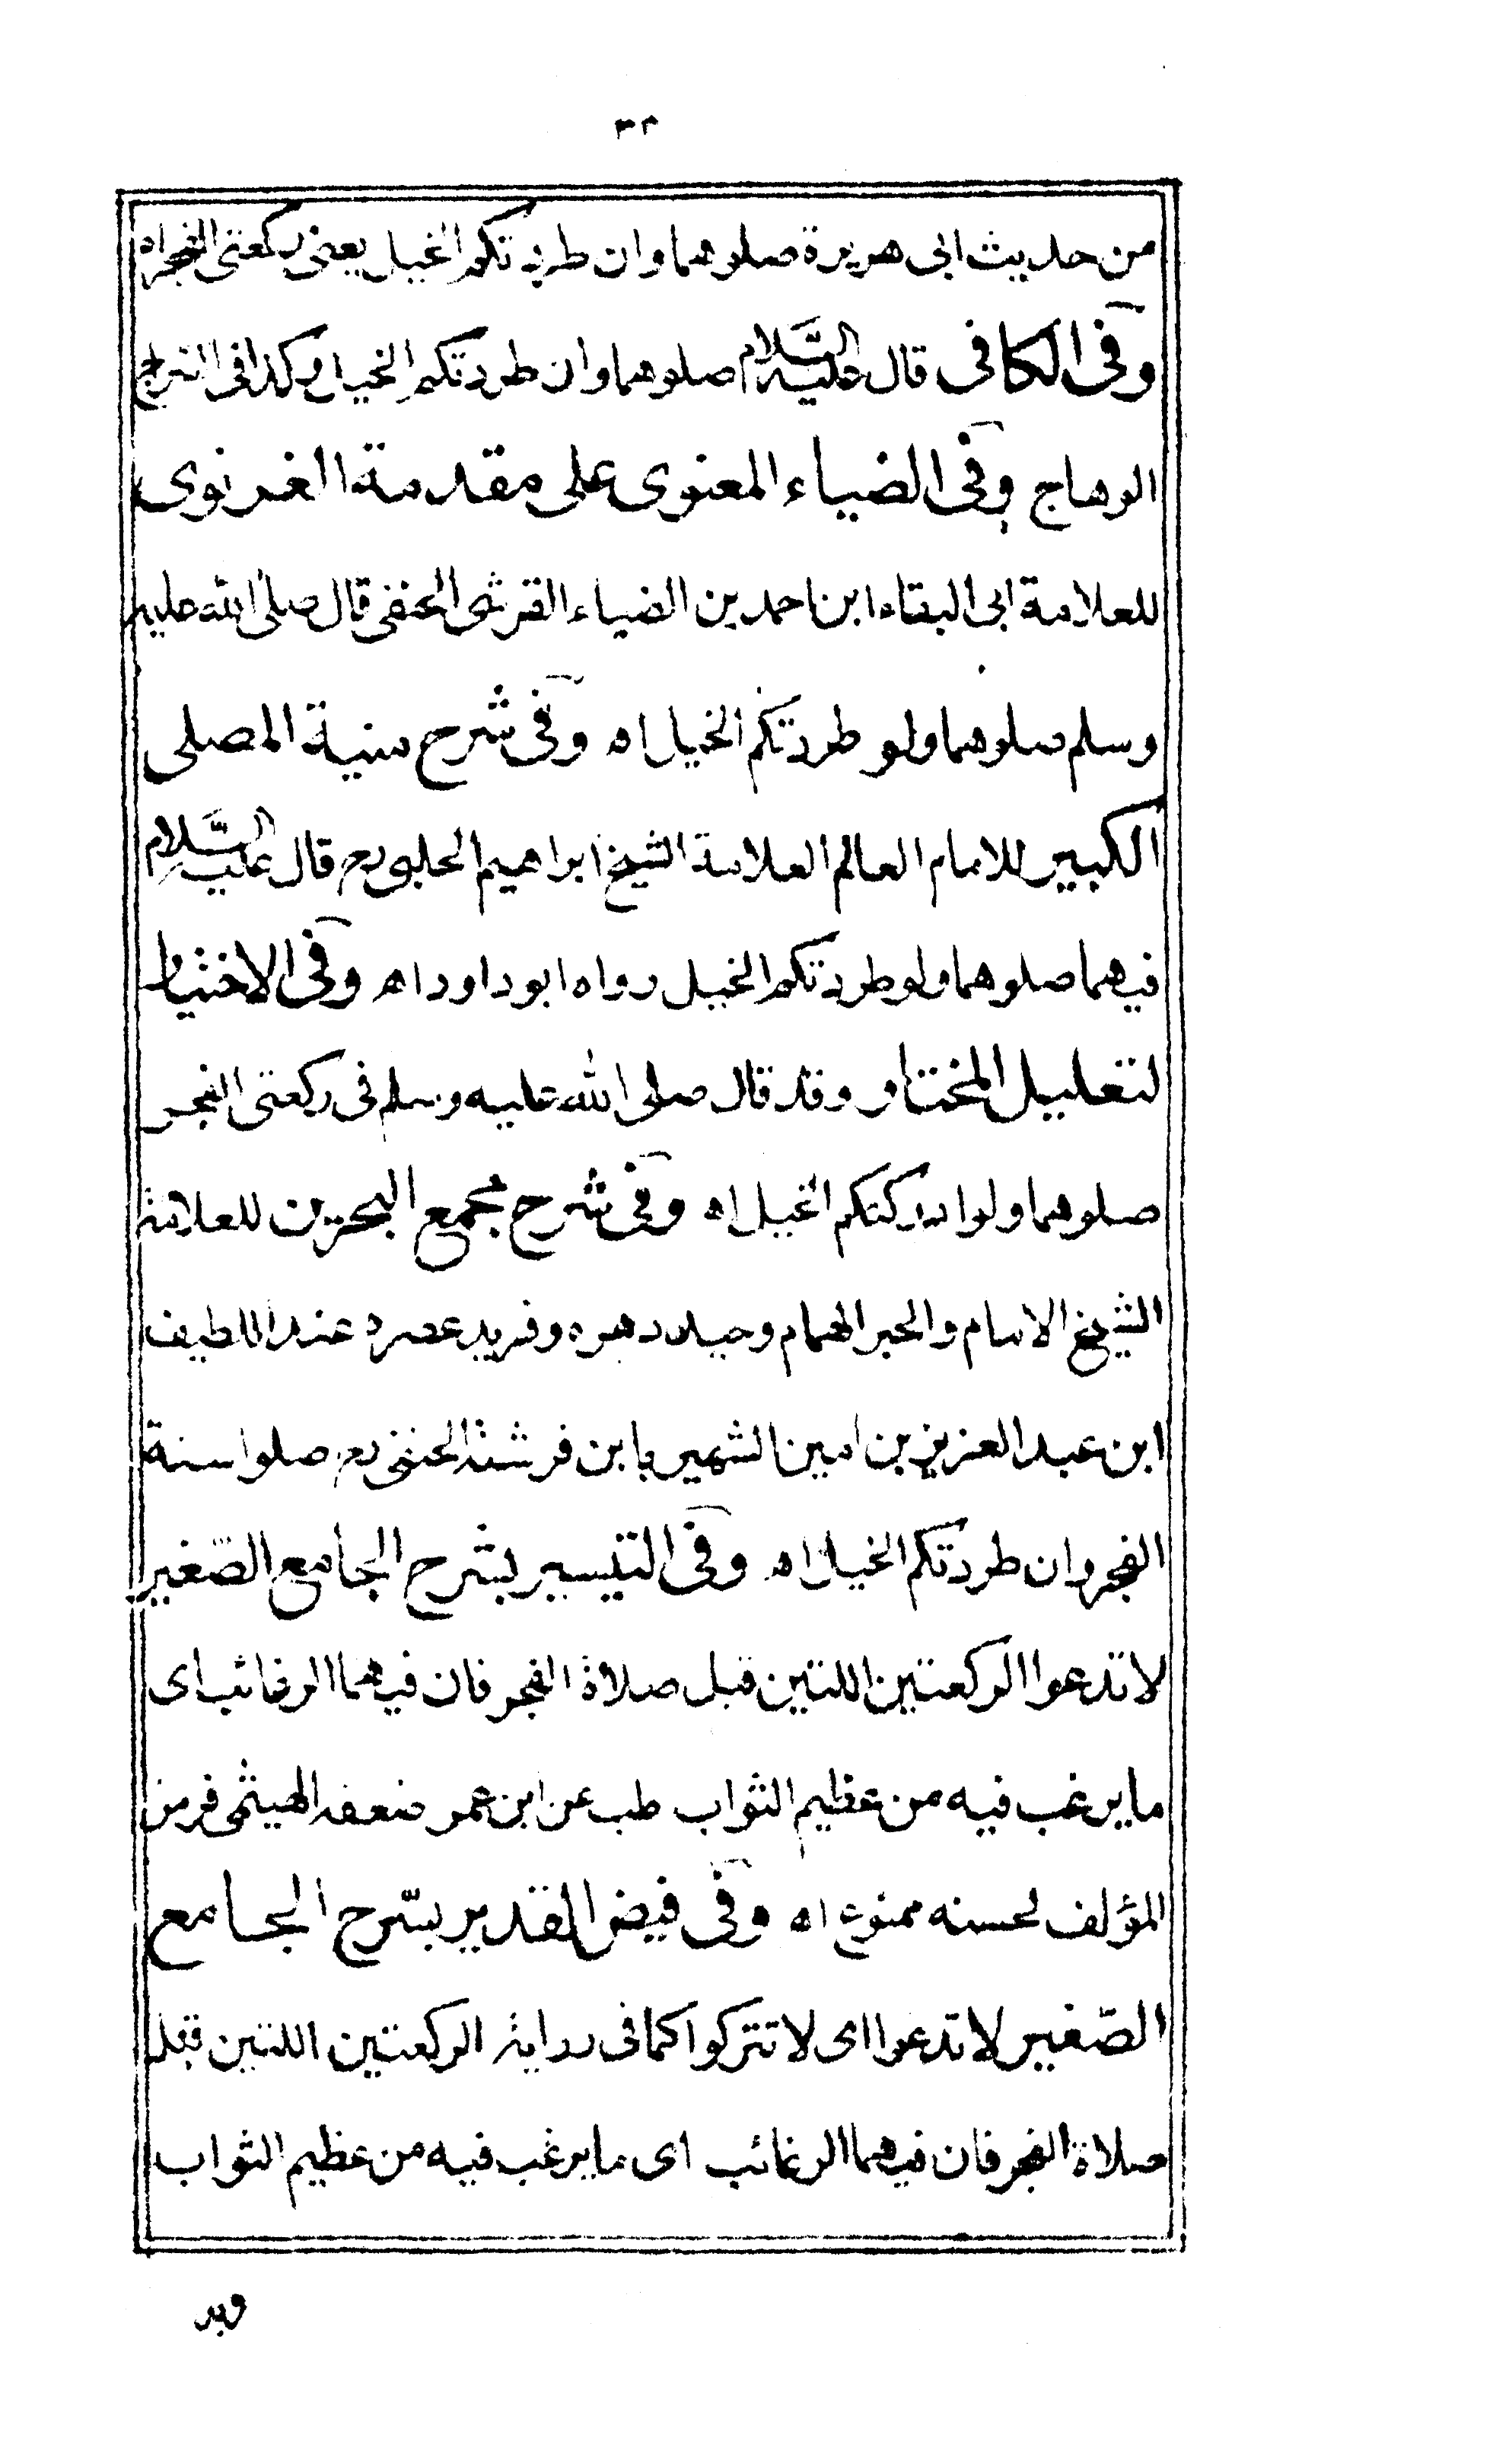 ٣٢
من حديث ابى هريرة صلوهما وان طردتكم الخيل يعنى ركعتى الفجر اه
وفى الكافى قال عليه السَّلام صلوهما وان طردتكم الخيل وكذا فى السراج
الوهاج وفى الضياء المعنوى على مقدمة الغزنوى
للعلامة ابى البقاء ابن احمد بن الضياء القرشى الحنفى قال صلى الله عليه
وسلم صلوهما ولو طردتكم الخيل اه وفى شرح منية المصلى
الكبير للامام العالم العلامة الشيخ ابراهيم الحلبى رح قال عليه السَّلام
فيهما صلوهما ولو طردتكم الخيل رواه ابو داود اه وفى الاختيار
لتعليل المختار وقد قال صلى الله عليه وسلم فى ركعتى الفجر
صلوهما ولو ادركتكم الخيل اه وفى شرح مجمع البحرين للعلامة
الشيخ الامام والحبر الهمام وحيد دهره وفريد عصره عبد اللطيف
ابن عبد العزيز بن امين الشهير بابن فرشته الحنفى رح صلوا سنة
الفجر وان طردتكم الخيل اه وفى التيسير بشرح الجامع الصّغير
لا تدعوا الركعتين اللتين قبل صلاة الفجر فان فيهما الرغائب اى
ما يرغب فيه من عظيم الثواب طب عن ابن عمر ضعفه الهيثمى فرمز
المؤلف لحسنه ممنوع اه وفى فيض القدير بشرح الجامع
الصّغير لا تدعوا اى لا تتركوا كما فى رواية الركعتين اللتين قبل
صلاة الفجر فان فيهما الرغائب اى ما يرغب فيه من عظيم الثواب